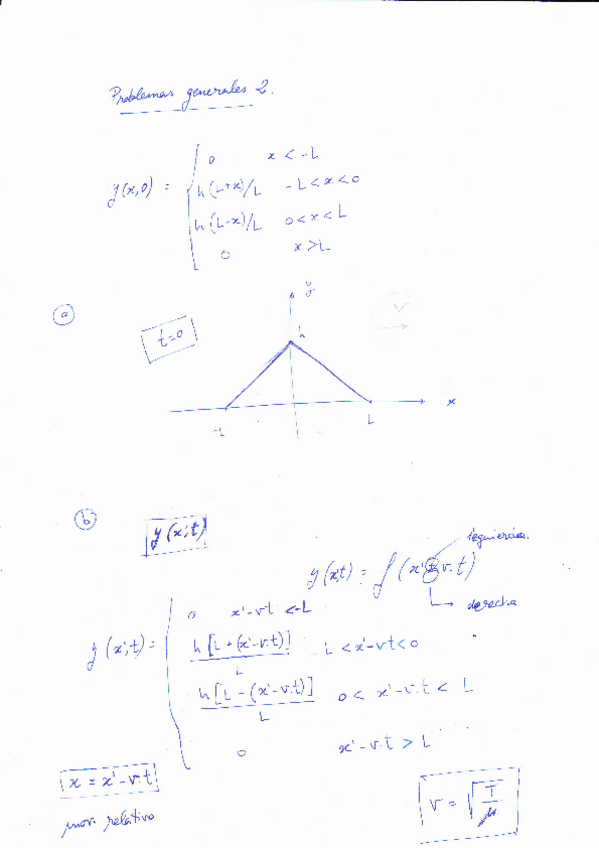 Problemas generales 2.
y(x,0) = { 0 x < -L
h(L+x)/L -L<x<0
h(L-x)/L 0<x<L
0 x>L
a
t=0
y
v
h
x
-L
L
b
y(x',t)
izquierda.
y(x',t) = f(x' ± v.t)
derecha
y(x',t) = { 0 x'-vt <-L
h[L+(x'-v.t)]/L L<x'-vt<0
h[L-(x'-v.t)]/L 0< x'-v.t < L
0 x'-v.t > L
x = x'-v.t
mov. relativo
v = √(T/μ)